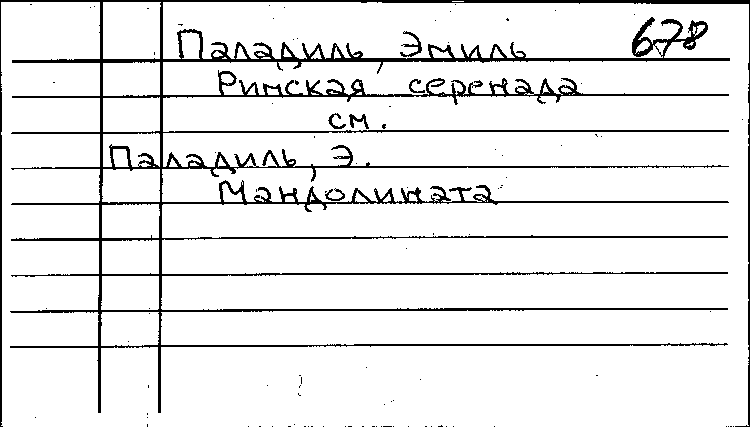 Паладиль, Эмиль 678
Римская серенада
см.
Паладиль, Э.
Мандолината